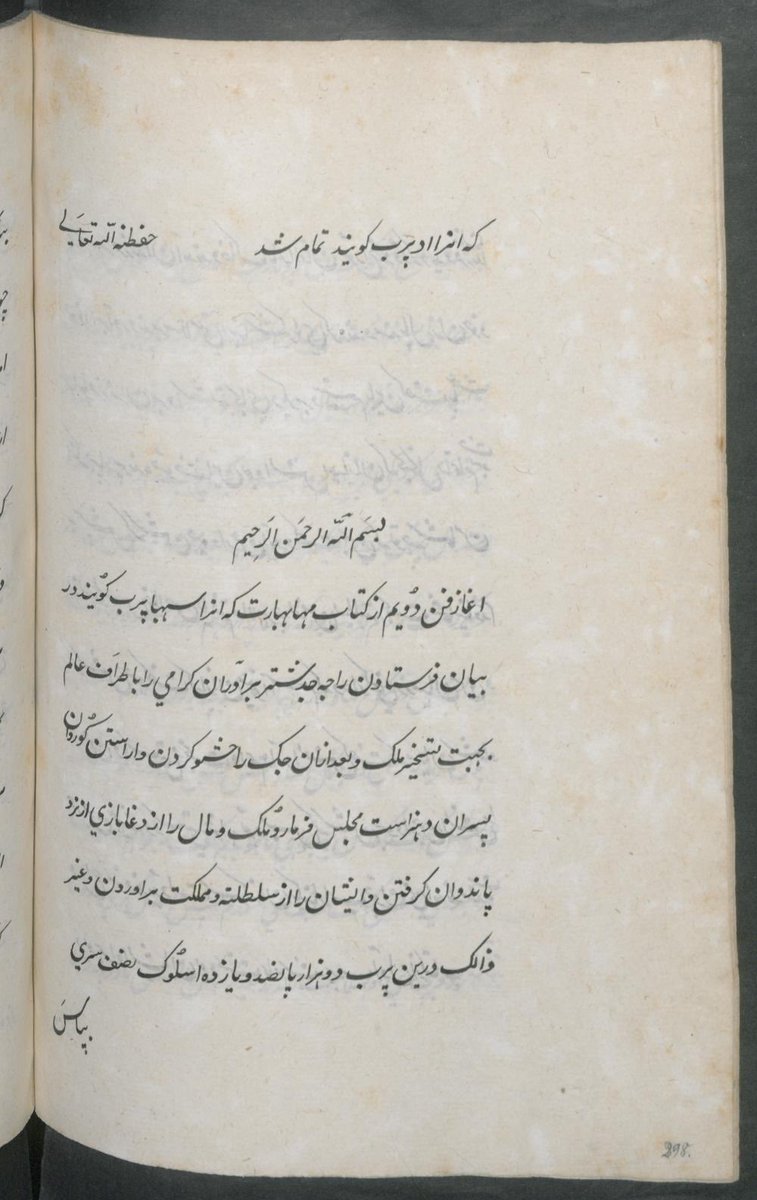 که انرا اد پرب کویند تمام شد حفظنه الله تعالے
بسم الله الرحمن الرحیم
اغاز فن دویم از کتاب مهابهارت که انرا سبها پرب کویند در
بیان فرستادن راجه جدشتر برادران کرامی را باطراف عالم
بجهت تسخیر ملک و بعد ازان جک راجسو کردن و اراستن کوروان
پسران دهتراست مجلس قمار و ملک و مال را از دغابازی از نزد
پاندوان کرفتن و ایشان را از سلطنه و مملکت براوردن و غیر
ذالک درین پرب دو هزار پانصد و یازده اسلوک نصف سری
بیاس
298.